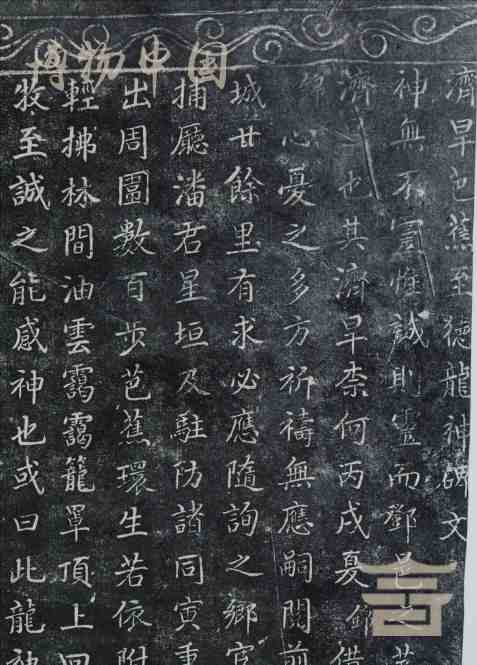 博物中国
濟旱芭蕉至德龍神碑文
神無不靈惟誠則靈而鄧邑之
濟也其濟旱柰何丙戌夏
心憂之多方祈禱無應嗣聞前
城廿餘里有求必應隨詢之鄉宦
捕廳潘君星垣及駐防諸同寅
出周圍數百步芭蕉環生若依附
輕拂林間油雲靄靄籠罩頂上
牧至誠之能感神也或曰此龍神